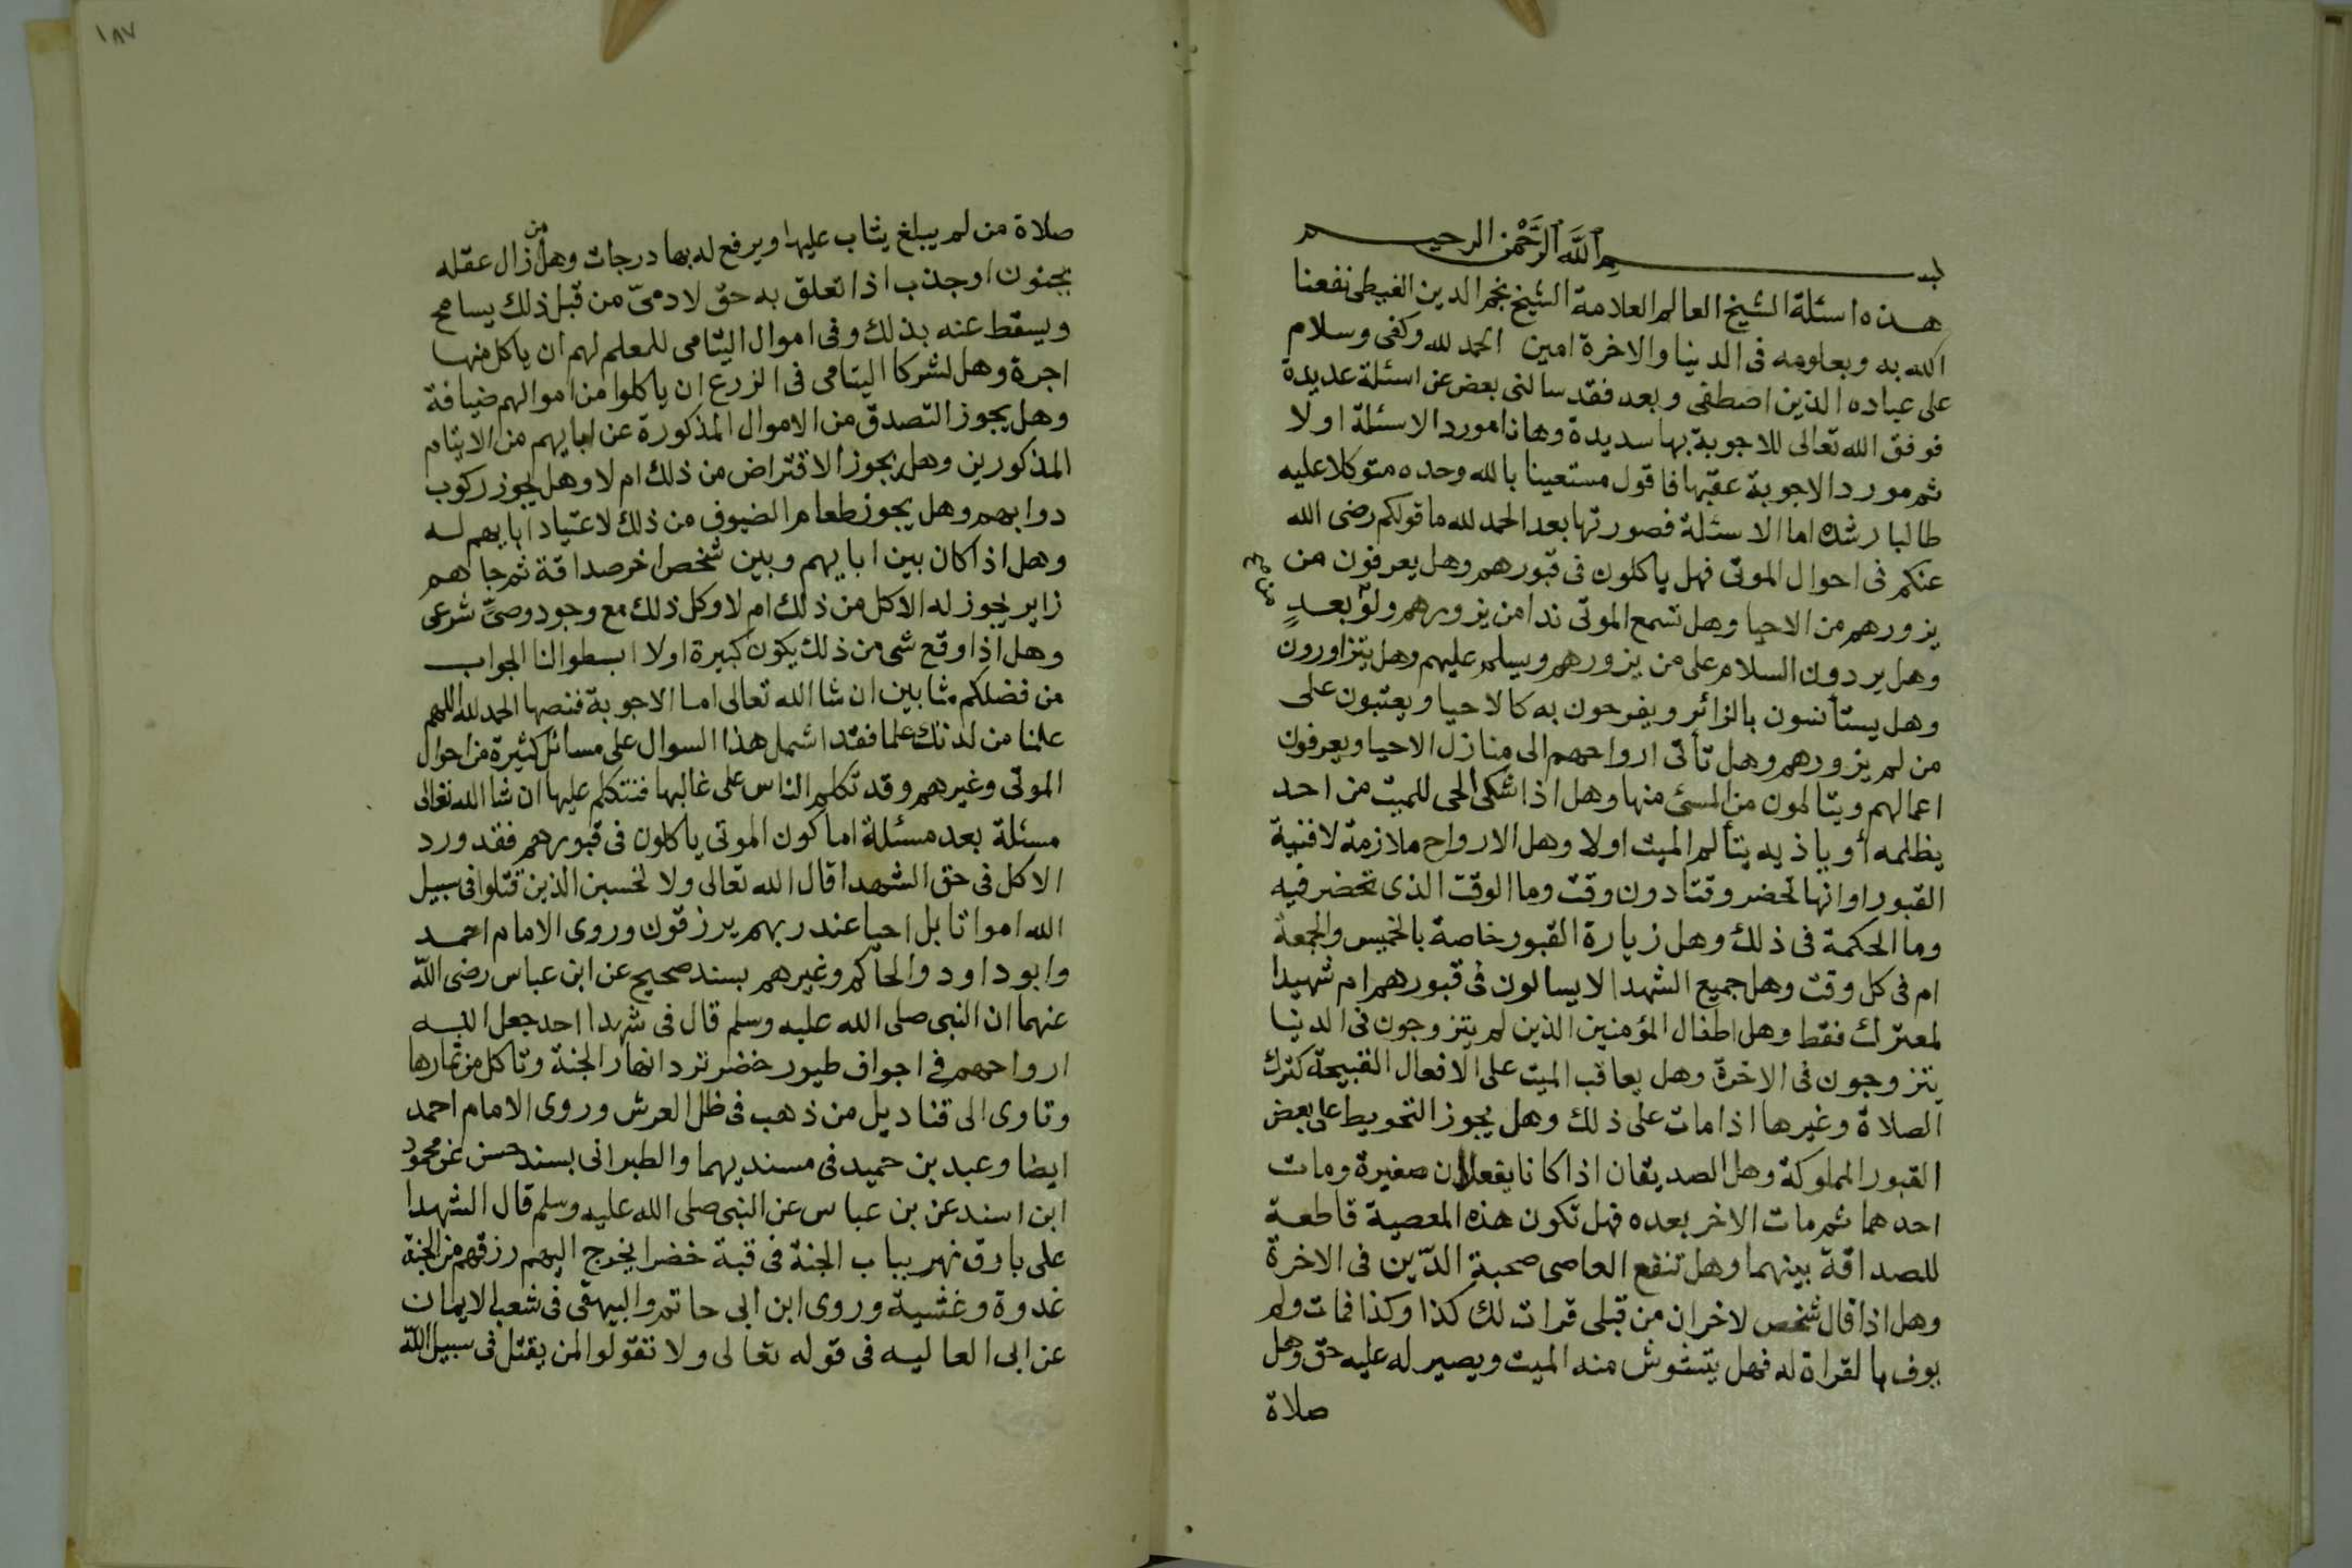 بسم الله الرحمن الرحيم
هذه اسئلة الشيخ العالم العلامة الشيخ نجم الدين الغيطى نفعنا
الله به وبعلومه فى الدنيا والاخرة امين الحمد لله وكفى وسلام
على عباده الذين اصطفى وبعد فقد سالنى بعض عن اسئلة عديدة
فوفق الله تعالى للاجوبة بها سديدة وها انا مورد الاسئلة اولا
ثم مورد الاجوبة عقبها فاقول مستعينا بالله وحده متوكلا عليه
طالبا رشده اما الاسئلة فصورتها بعد الحمد لله ما قولكم رضى الله
عنكم فى احوال الموتى فهل ياكلون فى قبورهم وهل يعرفون من
يزورهم من الاحيا وهل تسمع الموتى ندا من يزورهم ولو بعد
من
وهل يردون السلام على من يزورهم ويسلم عليهم وهل يتزاورون
وهل يستأنسون بالزائر ويفرحون به كالاحيا ويعتبون على
من لم يزورهم وهل تأتى ارواحهم الى منازل الاحيا ويعرفون
اعمالهم ويتالمون من المسئ منها وهل اذا اشتكى الحى للميت من احد
يظلمه أو ياذيه يتألم الميت اولا وهل الارواح ملازمة لافنية
القبور او انها تحضر وقتا دون وقت وما الوقت الذى تحضر فيه
وما الحكمة فى ذلك وهل زيارة القبور خاصة بالخميس والجمعة
ام فى كل وقت وهل جميع الشهدا لا يسالون فى قبورهم ام شهيدا
لمعترك فقط وهل اطفال المؤمنين الذين لم يتزوجون فى الدنيا
يتزوجون فى الاخرة وهل يعاقب الميت على الافعال القبيحة كترك
الصلاة وغيرها اذا مات على ذلك وهل يجوز التحويط على بعض
القبور المملوكة وهل الصديقان اذا كانا يفعلان صغيرة ومات
احدهما ثم مات الاخر بعده فهل تكون هذه المعصية قاطعة
للصداقة بينهما وهل تنفع العاصى صحبة الدّين فى الاخرة
وهل اذا قال شخص لاخر ان من قبلى قرات لك كذا وكذا فمات ولم
يوف بالقراة له فهل يتشوش منه الميت ويصير له عليه حق وهل
صلاة
١٨٧
صلاة من لم يبلغ يثاب عليها ويرفع له بها درجات وهل من زال عقله
بجنون او جذب اذا تعلق به حق لادمىّ من قبل ذلك يسامح
ويسقط عنه بذلك وفى اموال اليتامى للمعلم لهم ان ياكل منها
اجرة وهل لشركا اليتامى فى الزرع ان ياكلوا من اموالهم ضيافة
وهل يجوز التصدق من الاموال المذكورة عن ابايهم من الايتام
المذكورين وهل يجوز الاقتراض من ذلك ام لا وهل يجوز ركوب
دوابهم وهل يجوز طعام الضيوف من ذلك لاعتياد ابايهم له
وهل اذا كان بين ابايهم وبين شخص اخر صداقة ثم جاهم
زاير يجوز له الاكل من ذلك ام لا وكل ذلك مع وجود وصىّ شرعى
وهل اذا وقع شى من ذلك يكون كبيرة اولا ابسطوا لنا الجواب
من فضلكم مثابين ان شا الله تعالى اما الاجوبة فنصها الحمد لله اللهم
علمنا من لدنك علما فقد اشمل هذا السوال على مسائل كثيرة من احوال
الموتى وغيرهم وقد تكلم الناس على غالبها فنتكلم عليها ان شا الله تعالى
مسئلة بعد مسئلة اما كون الموتى ياكلون فى قبورهم فقد ورد
الاكل فى حق الشهدا قال الله تعالى ولا تحسبن الذين قتلوا فى سبيل
الله امواتا بل احيا عند ربهم يرزقون وروى الامام احمد
وابو داود والحاكم وغيرهم بسند صحيح عن ابن عباس رضى الله
عنهما ان النبى صلى الله عليه وسلم قال فى شهدا احد جعل الله
ارواحهم فى اجواف طيور خضر ترد انهار الجنة وتاكل من ثمارها
وتاوى الى قناديل من ذهب فى ظل العرش وروى الامام احمد
ايضا وعبد بن حميد فى مسنديهما والطبرانى بسند حسن عن محمود
ابن اسند عن بن عباس عن النبى صلى الله عليه وسلم قال الشهدا
على بارق نهر بباب الجنة فى قبة خضرا يخرج اليهم رزقهم من الجنة
غدوة وغشية وروى ابن ابى حاتم والبيهقى فى شعب الايمان
عن ابى العاليه فى قوله تعالى ولا تقولوا لمن يقتل فى سبيل الله